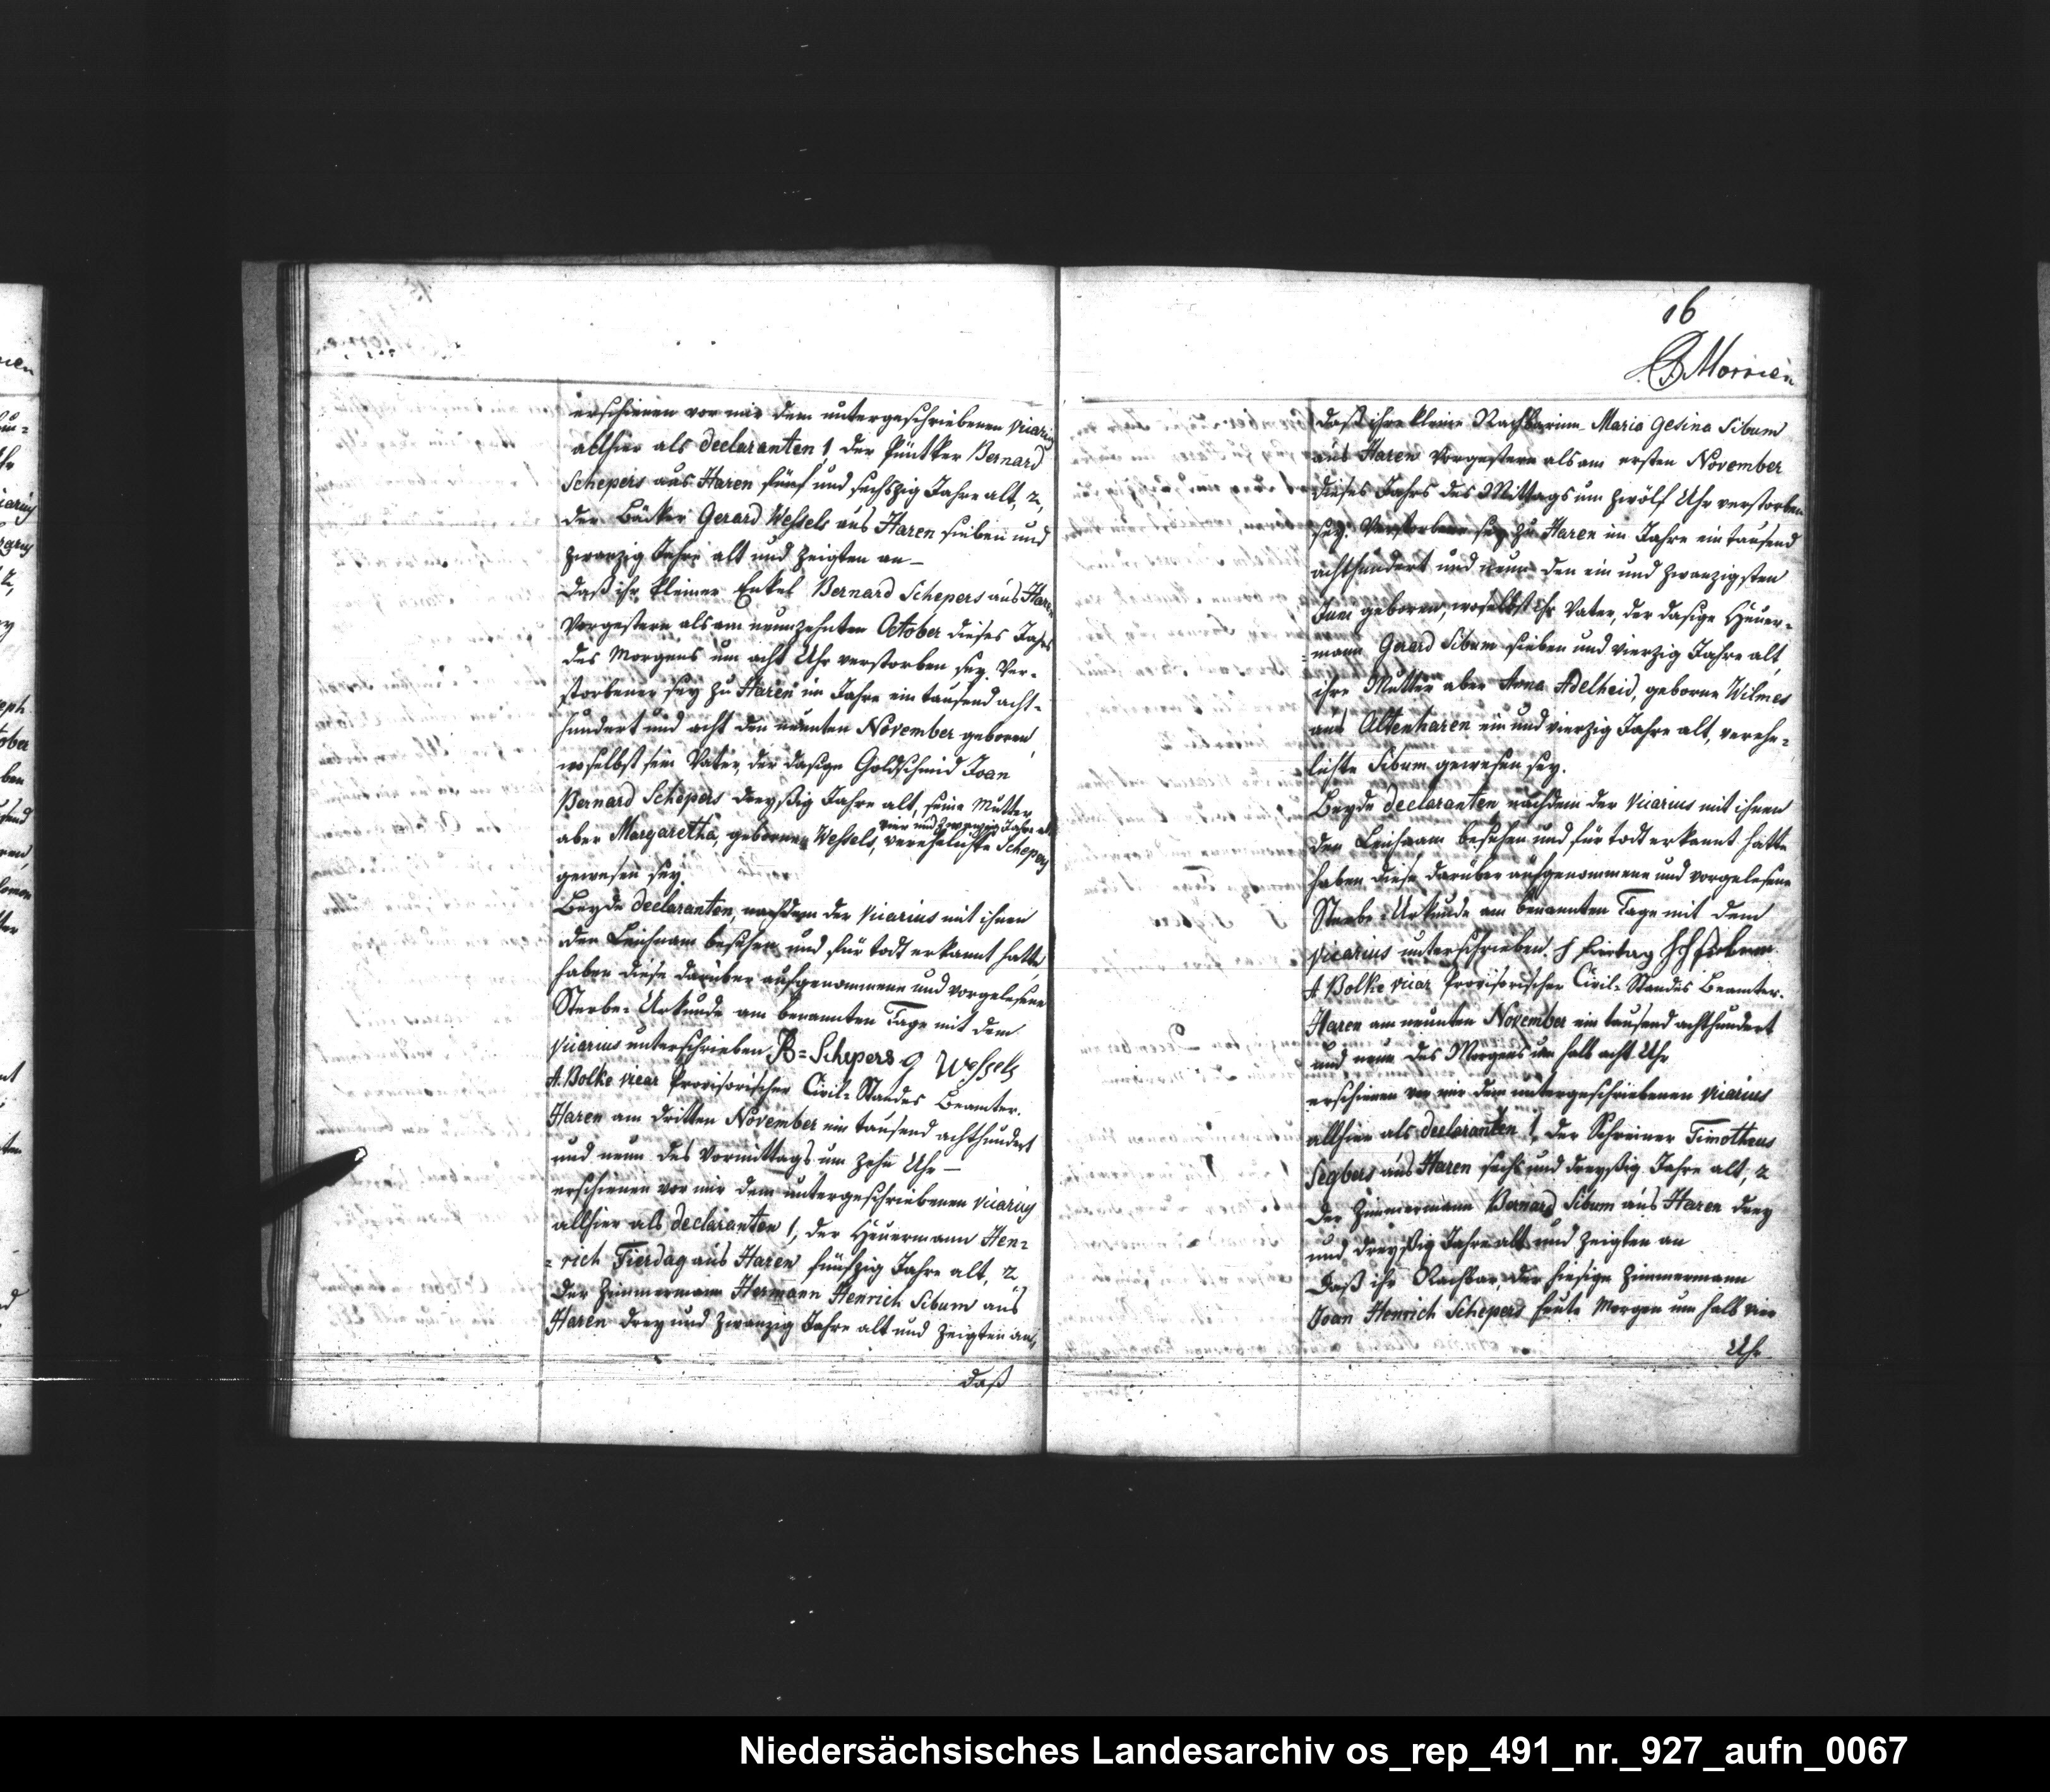 erschienen vor mir dem untergeschriebenen vicarius
allhier als declaranten 1, der Püntker Bernard
Schepers aus Haren fünf und sechszig Jahre alt, 2,
der Bäcker Gerard Wessels aus Haren sieben und
zwanzig Jahre alt und zeigten an –
daß ihr kleiner Enkel Bernard Schepers aus Haren
vorgestern als am neunzehnten October dieses Jahrs
des Morgens um acht Uhr verstorben sey. Ver-
storbener sey zu Haren im Jahre ein tausend acht-
hundert und acht den neunten November geboren,
woselbst sein Vater, der dasige Goldschmid Joan
Bernard Schepers dreyßig Jahre alt, seine Mutter
vier und zwanzig Jahre alt
aber Margaretha, geborne Wessels, verehelichte Schepers
gewesen sey
Beyde declaranten, nachdem der vicarius mit ihnen
den Leichnam besehen und für todt erkannt hatte,
haben diese darüber aufgenommene und vorgelesene
Sterbe-Urkunde am benannten Tage mit dem
vicarius unterschrieben B=Schepers G Wessels
A. Bolke vicar Provisorischer Civil-Standes Beamter.
Haren am dritten November ein tausend achthundert
und neun des Vormittags um zehn Uhr –
erschienen vor mir dem untergeschriebenen vicarius
allhier als declaranten 1, der Heuermann Hen=
=rich Fierdag aus Haren fünfzig Jahre alt, 2
der Zimmermann Hermann Henrich Sibum aus
Haren drey und zwanzig Jahre alt und zeigten an,
daß
16
Morrien
daß ihre kleine Nachbarinn Maria Gesina Sibum
aus Haren vorgestern als am ersten November
dieses Jahrs des Mittags um zwölf Uhr verstorben
sey. Verstorbene sey zu Haren im Jahre ein tausend
achthundert und neun den ein und zwanzigsten
Juni geboren, woselbst ihr Vater, der dasige Heuer-
=mann Gerard Sibum sieben und vierzig Jahre alt,
ihre Mutter aber Anna Adelheid, geborne Wilmes
aus Altenharen ein und vierzig Jahre alt, verehe-
lichte Sibum gewesen sey.
Beyde declaranten nachdem der vicarius mit ihnen
den Leichnam besehen und für todt erkannt hatte
haben diese darüber aufgenommene und vorgelesene
Sterbe-Urkunde am benannten Tage mit dem
vicarius unterschrieben. H
A Bolke vicar Provisorischer Civil-Standes Beamter.
Haren am neunten November ein tausend achthundert
und neun des Morgens um halb acht Uhr
erschienen vor mir dem untergeschriebenen vicarius
allhier als declaranten 1, der Schreiner Timotheus
Segbers aus Haren sechs und dreyßig Jahre alt, 2
der Zimmermann Bernard Sibum aus Haren drey
und dreyßig Jahre alt und zeigten an
daß ihr Nachbar, der hiesige Zimmermann
Joan Henrich Schepers heute Morgen um halb vier
Uhr
Niedersächsisches Landesarchiv os_rep_491_nr._927_aufn_0067